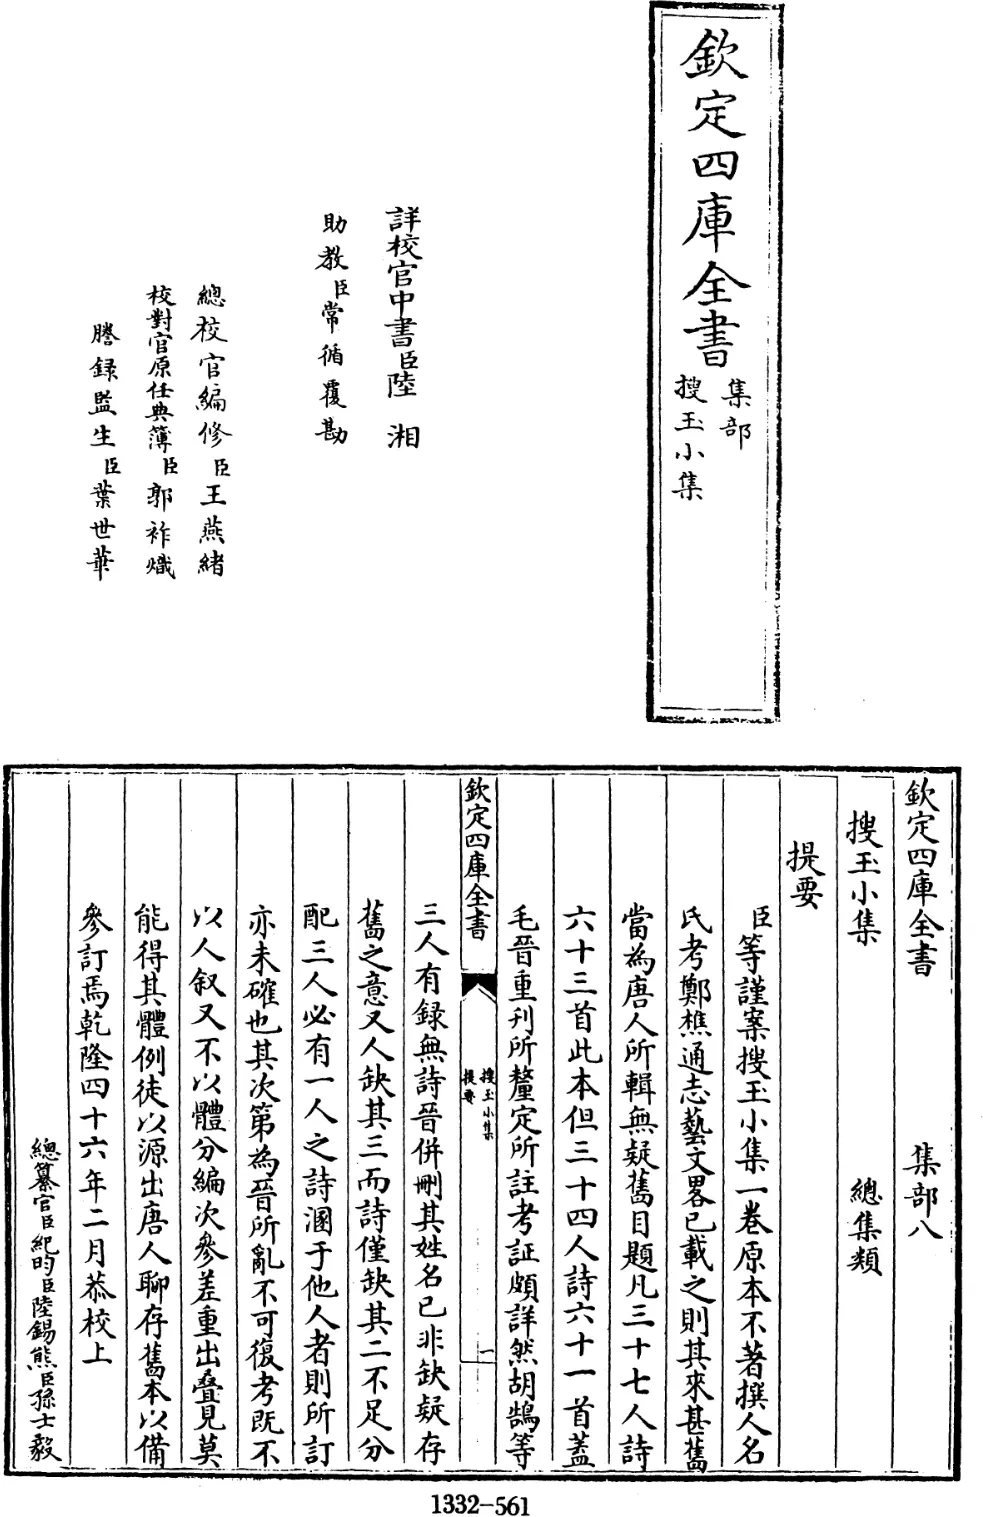 欽定四庫全書
集部
搜玉小集
詳校官中書臣陸湘
助教臣常循覆勘
總校官編修臣王燕緒
校對官原任典簿臣郭祚熾
謄録監生臣葉世華
欽定四庫全書 集部八
搜玉小集 總集類
提要
臣等謹案搜玉小集一卷原本不著撰人名
氏考鄭樵通志藝文畧已載之則其來甚舊
當為唐人所輯無疑舊目題凡三十七人詩
六十三首此本但三十四人詩六十一首蓋
毛晉重刋所釐定所註考証頗詳然胡鵠等
欽定四庫全書
搜玉小集
提要
一
三人有録無詩晉併刪其姓名已非缺疑存
舊之意又人缺其三而詩僅缺其二不足分
配三人必有一人之詩溷于他人者則所訂
亦未確也其次第為晉所亂不可復考既不
以人叙又不以體分編次參差重出疊見莫
能得其體例徒以源出唐人聊存舊本以備
參訂焉乾隆四十六年二月恭校上
總纂官臣紀昀臣陸錫熊臣孫士毅
1332-561